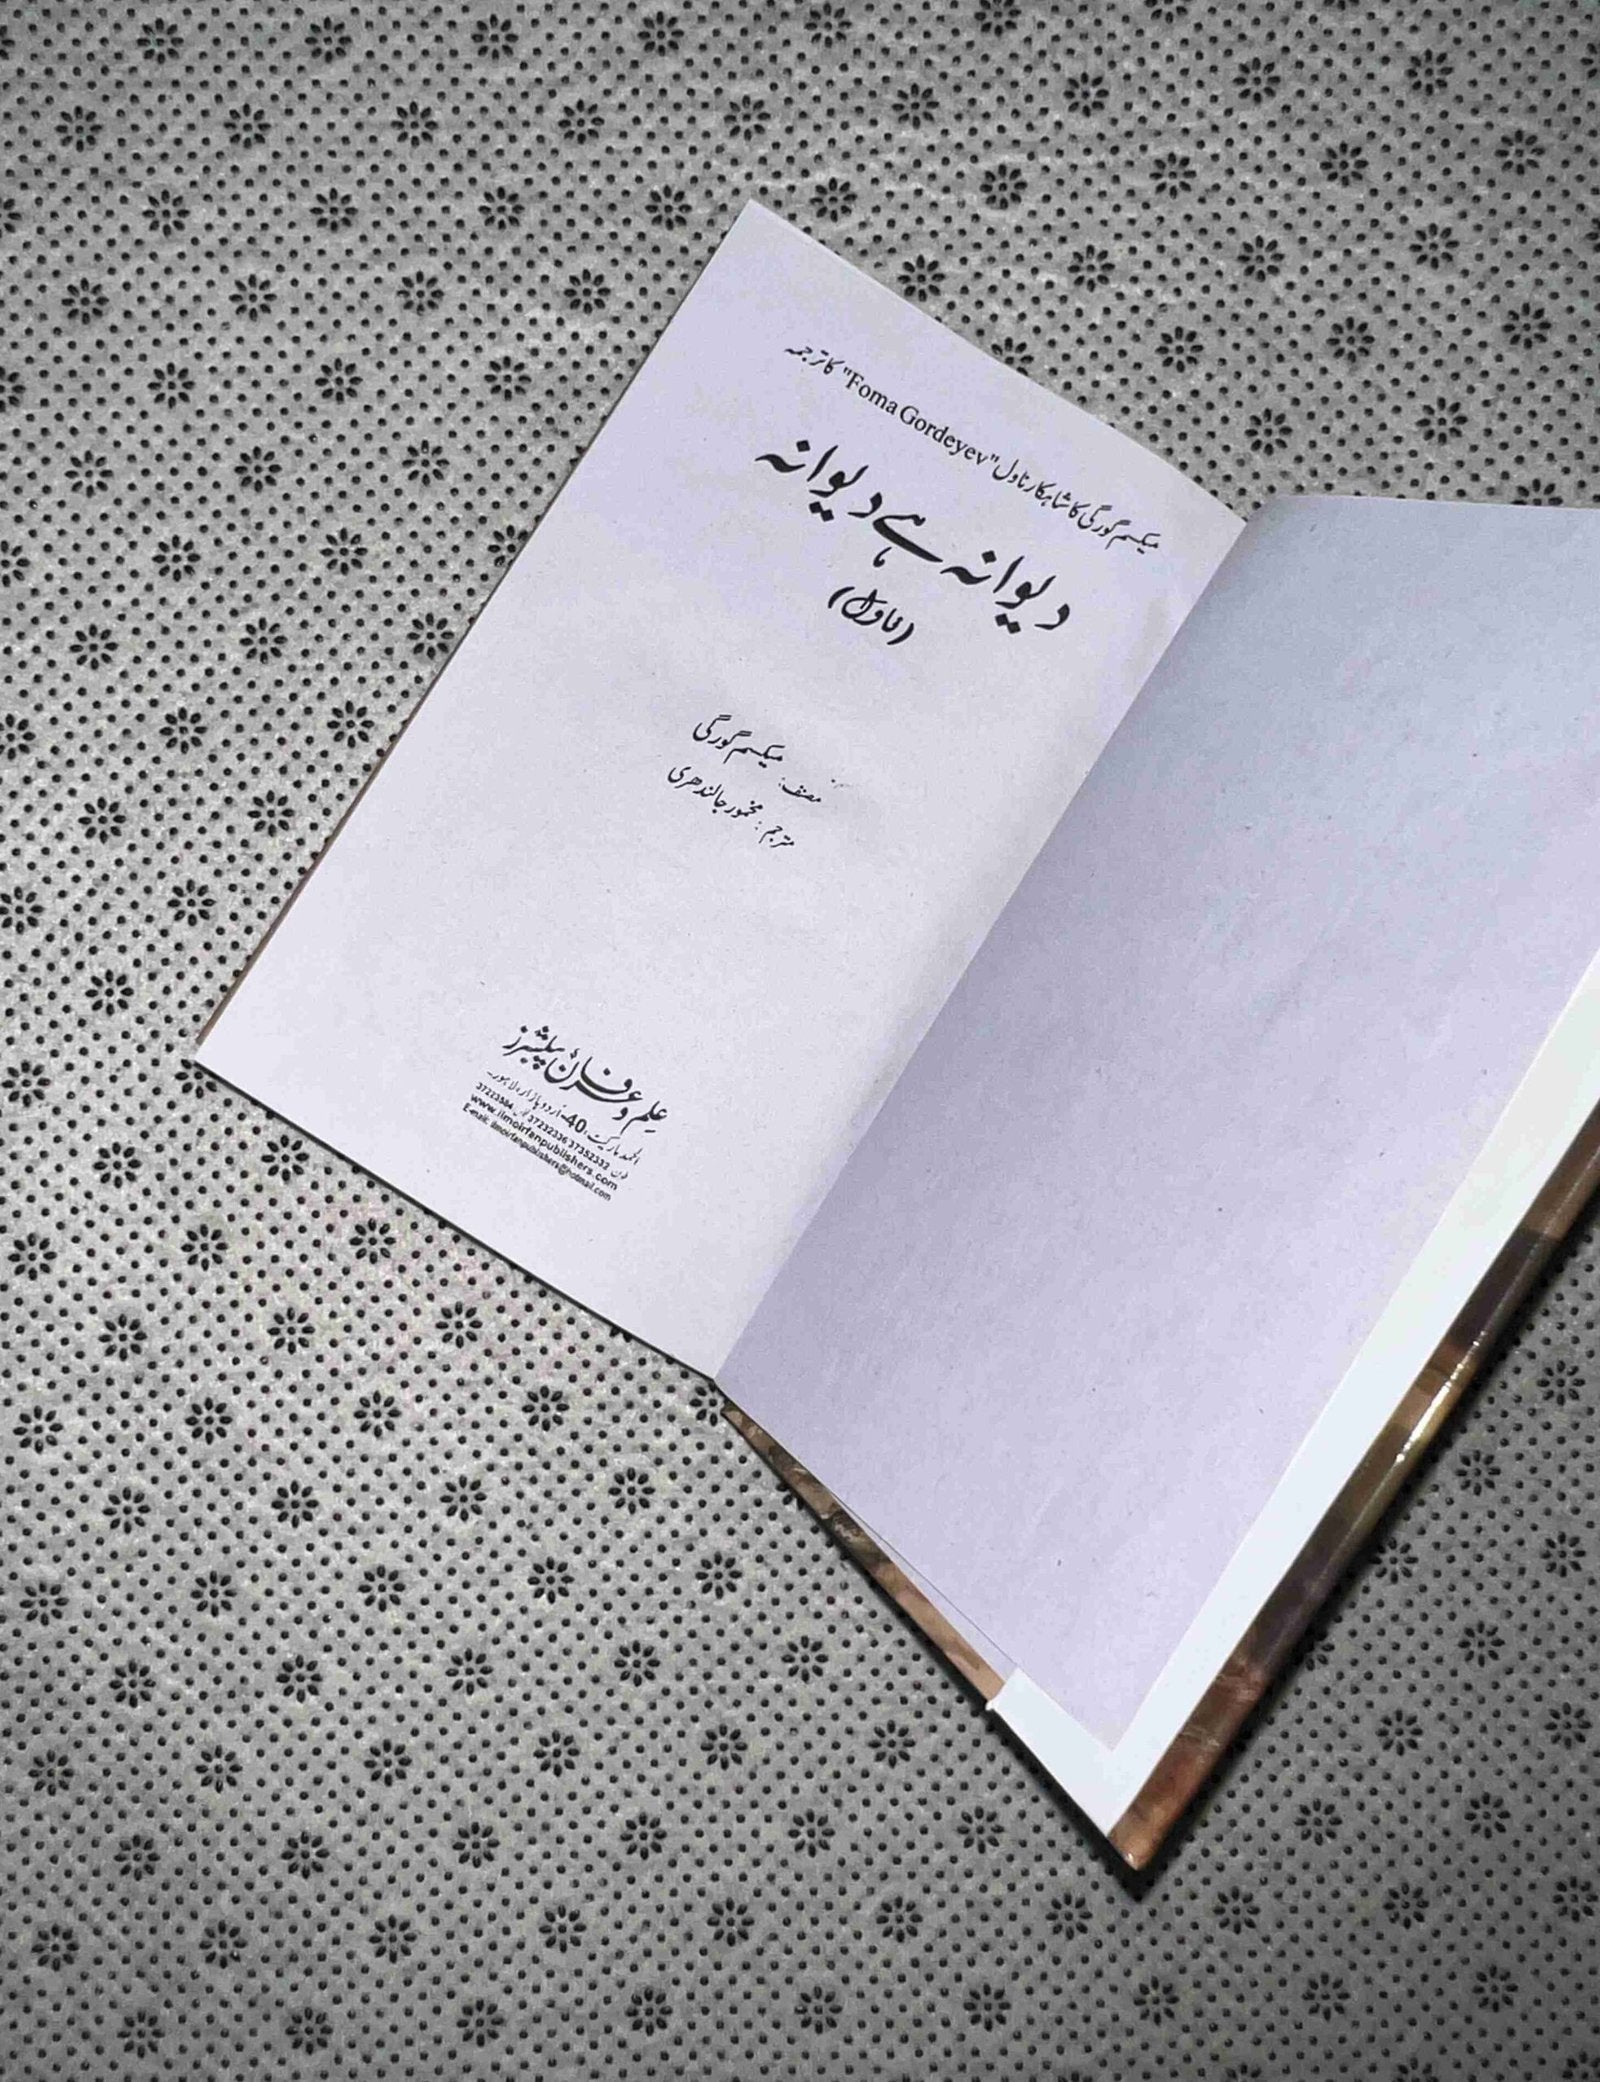 میکسم گورگی کا شاہکار ناول "Foma Gordeyev" کا ترجمہ
دیوانہ ہے دیوانہ
(ناول)
مصنف: میکسم گورگی
مترجم: مخمور جالندھری
علم و عرفان پبلشرز
الحمد مارکیٹ، 40-اُردو بازار، لاہور۔
فون 37352332 37232336 37223584
www.ilmoirfanpublishers.com
E-mail: ilmoirfanpublishers@hotmail.com